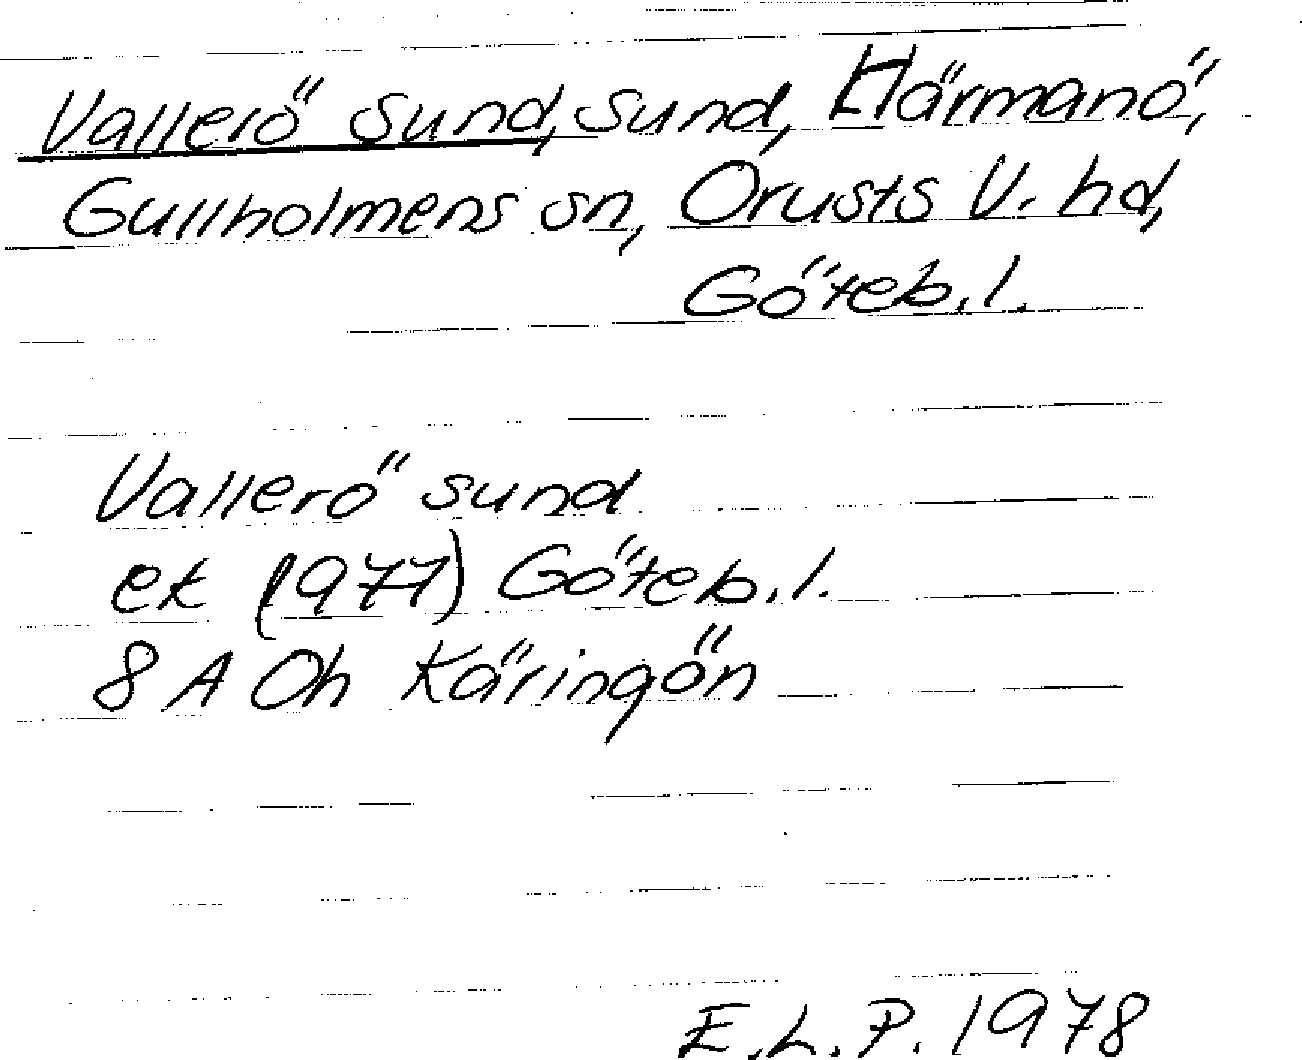 Vallerö sund, sund, Härmanö,
Gullholmens sn, Orusts V. hd,
Göteb. l.
Vallerö sund
ek (1977) Göteb. l.
8 A Oh Käringön
E.L.P. 1978